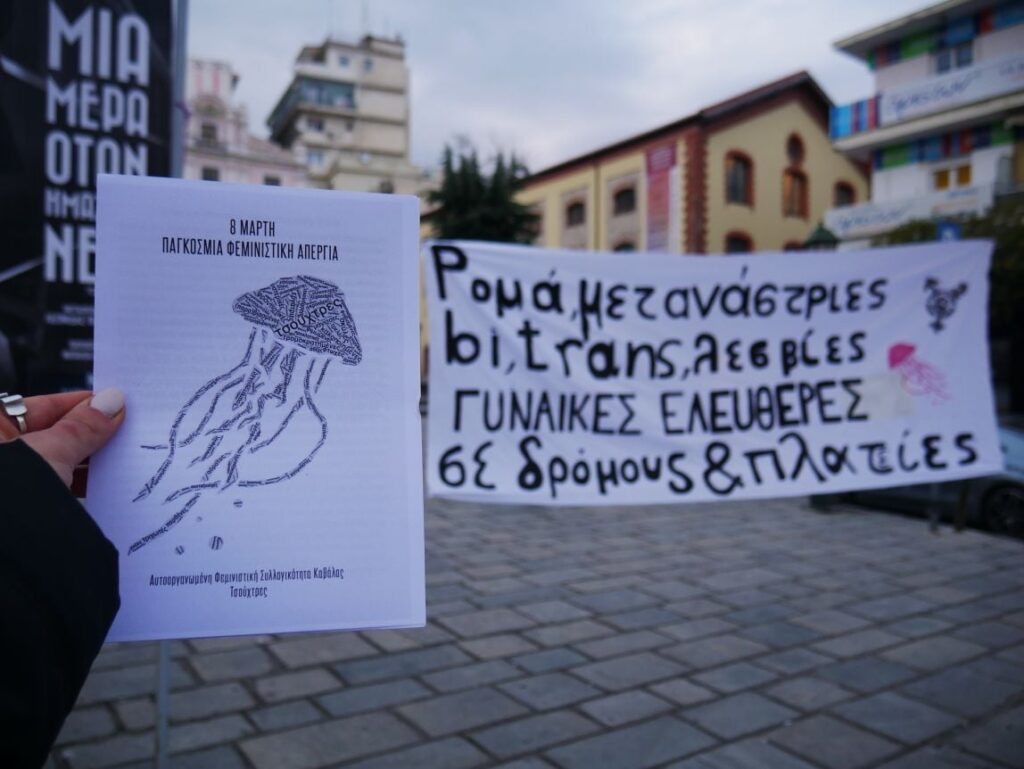 ΜΙΑ
ΜΕΡΑ
ΟΤΑΝ
8 ΜΑΡΤΗ
ΠΑΓΚΟΣΜΙΑ ΦΕΜΙΝΙΣΤΙΚΗ ΑΠΕΡΓΙΑ
τσούχτρες
Αυτοοργανωμένη Φεμινιστική Συλλογικότητα Καβάλας
Τσούχτρες
Ρομά, μετανάστριες
bi, trans, λεσβίες
ΓΥΝΑΙΚΕΣ ΕΛΕΥΘΕΡΕΣ
σε δρόμους & πλατείες